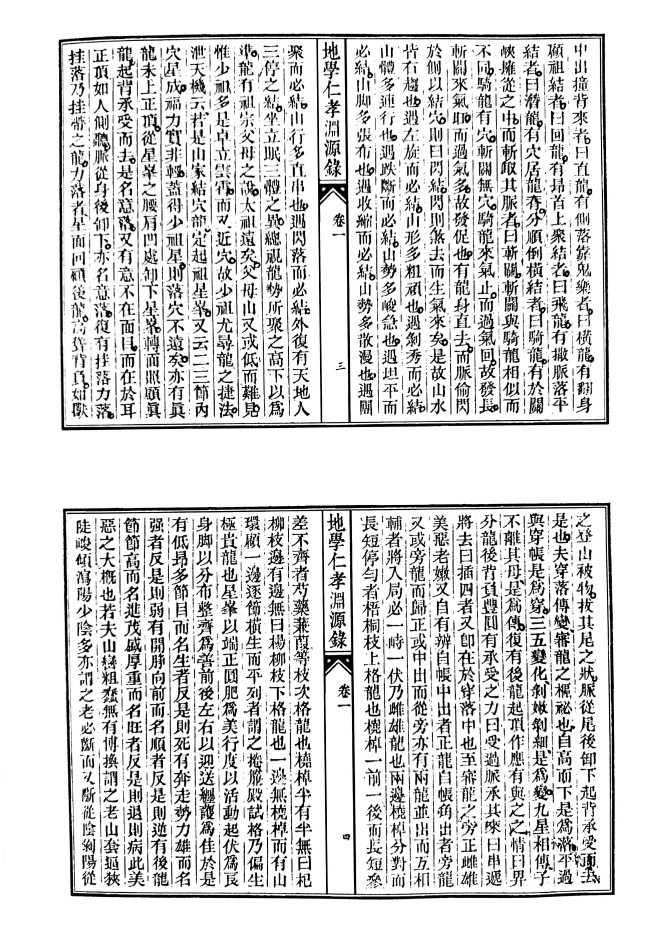 中出撞背來者曰直龍有側落靠鬼樂者曰橫龍有翻身
顧祖結者曰回龍有昂首上聚結者曰飛龍有撒脈落平
結者曰潛龍有穴居龍脊分順倒橫結者曰騎龍有於關
峽擁從之中而斬取其脈者曰斬關斬關與騎龍相似而
不同騎龍有穴斬關無穴騎龍來氣止而過氣回故發長
斬關來氣取而過氣多故發促也有龍身直去而脈偷閃
於側以結穴則曰閃結閃則煞去而生氣來矣是故山水
皆右趨也遇左旋而必結山形多粗頑也遇剝秀而必結
山體多連行也遇跌斷而必結山勢多峻急也遇坦平而
必結山脚多張布也遇收縮而必結山勢多散漫也遇團
地學仁孝淵源錄
卷一
三
聚而必結山行多直串也遇閃落而必結外復有天地人
三停之結坐立眠三體之異總視龍勢所聚之高下以爲
準龍有祖宗父母之說太祖遠矣父母山又或低而難見
惟少祖多是卓立雲霄而又近穴故少祖尤尋龍之捷法
泄天機云若是山家結穴龍定起祖星峯又云二三節內
穴星成福力實非輕蓋得少祖星則落穴不遠矣亦有眞
龍未上正頂從星峯之腰肩凹處卸下星峯轉而照顧眞
龍起背承受而去是名意落又有意不在面目而在於耳
正頂如人側聽脈從身後卸下亦名意落復有挂落力落
挂落乃挂帶之龍力落者星面回顧後龍高聳背負如獸
之登山被物拔其尾之狀脈從尾後卸下起背承受而去
是也夫穿落傳變審龍之樞祕也自高而下是爲落平過
與穿帳是爲穿三五變化剝嫩剝細是爲變九星相傳子
不離其母是爲傳復有後龍起頂作應有與之之情曰畀
分龍後背負豐圓有承受之力曰受過脈承其來曰串遞
將去曰插四者又卽在於穿落中也至審龍之旁正雌雄
美惡老嫩又自有辨自帳中出者正龍自帳角出者旁龍
又或旁龍而歸正或中出而從旁亦有兩龍並出而互相
輔者將入局必一峙一伏乃雌雄龍也兩邊橈棹分對而
長短停勻者梧桐枝上格龍也橈棹一前一後而長短參
地學仁孝淵源錄
卷一
四
差不齊者芍藥蒹葭等枝次格龍也橈棹半有半無曰杞
柳枝邊有邊無曰楊柳枝下格龍也一邊無橈棹而有山
環顧一邊逐節橫生而平列者謂之捲簾殿試格乃偏生
極貴龍也星峯以端正圓肥爲美行度以活動起伏爲良
身脚以分布整齊爲善前後左右以迎送纏護爲佳於是
有低昂多節目而名生者反是則死有奔走勢力雄而名
强者反是則弱有開睜向前而名順者反是則逆有後龍
節節高而名進茂盛厚重而名旺者反是則退則病此美
惡之大概也若夫山巒粗蠢無有博換謂之老山套逼狹
陡峻傾瀉陽少陰多亦謂之老必斷而又斷從陰剝陽從